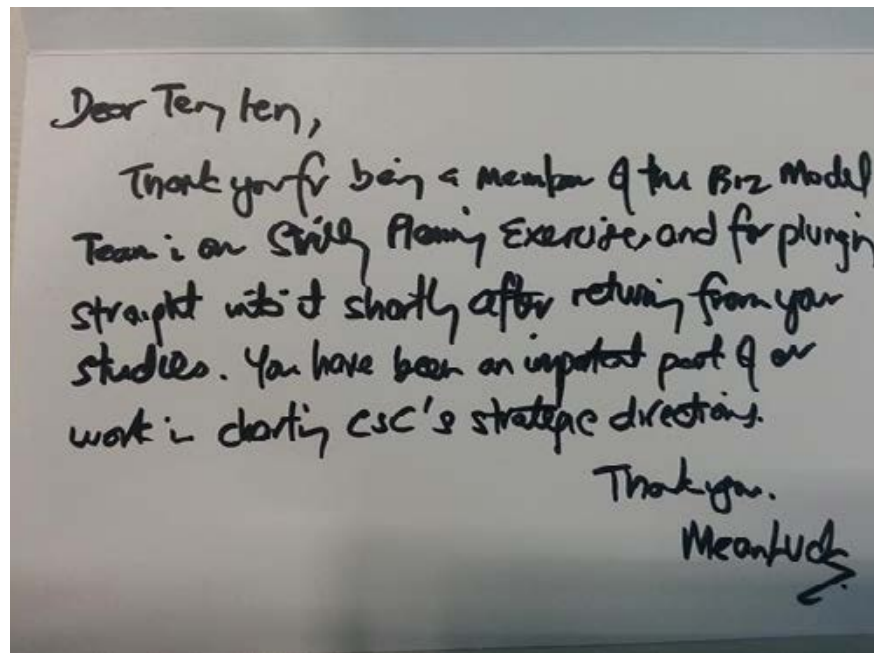 Dear Teng Leng,
Thank you for being a member of the Biz Model
Team in our Planning Exercise, and for plungin
straight into it shortly after returning from your
studies. You have been an important part of our
work in charting CSC's strategic directions.
Thank you.